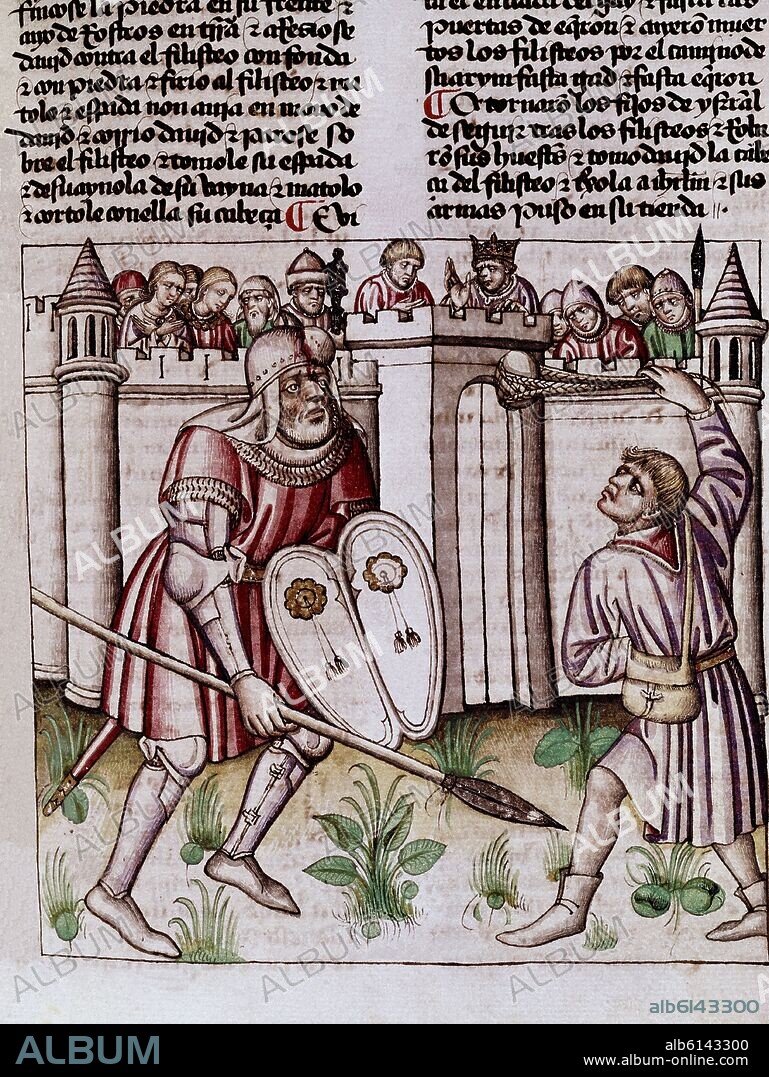 fincose la piedra en su fruente &
cayo de Rostros en tjrra & arresiose
dauid contra el filisteo con fonda
& con piedra & firio al filisteo & ma
tole & espada non auja en mano de
dauid & corrio dauid & parose so
bre el filisteo & tomole su espada
& desuaynola de su vayna & matolo
& cortole con ella su cabeça ¶ E vi
puertas de eqron & cayeron muer
tos los filisteos por el camjno de
saarym fasta gad & fasta eqron
¶ E tornaron los fijos de ysrael
de seguir tras los filisteos & Roba
ron sus huestes & tomo dauid la cabe
ça del filisteo & & sus
armas puso en su tienda
ALBUM
alb6143300
ALBUM
alb6143300
www.album-online.com